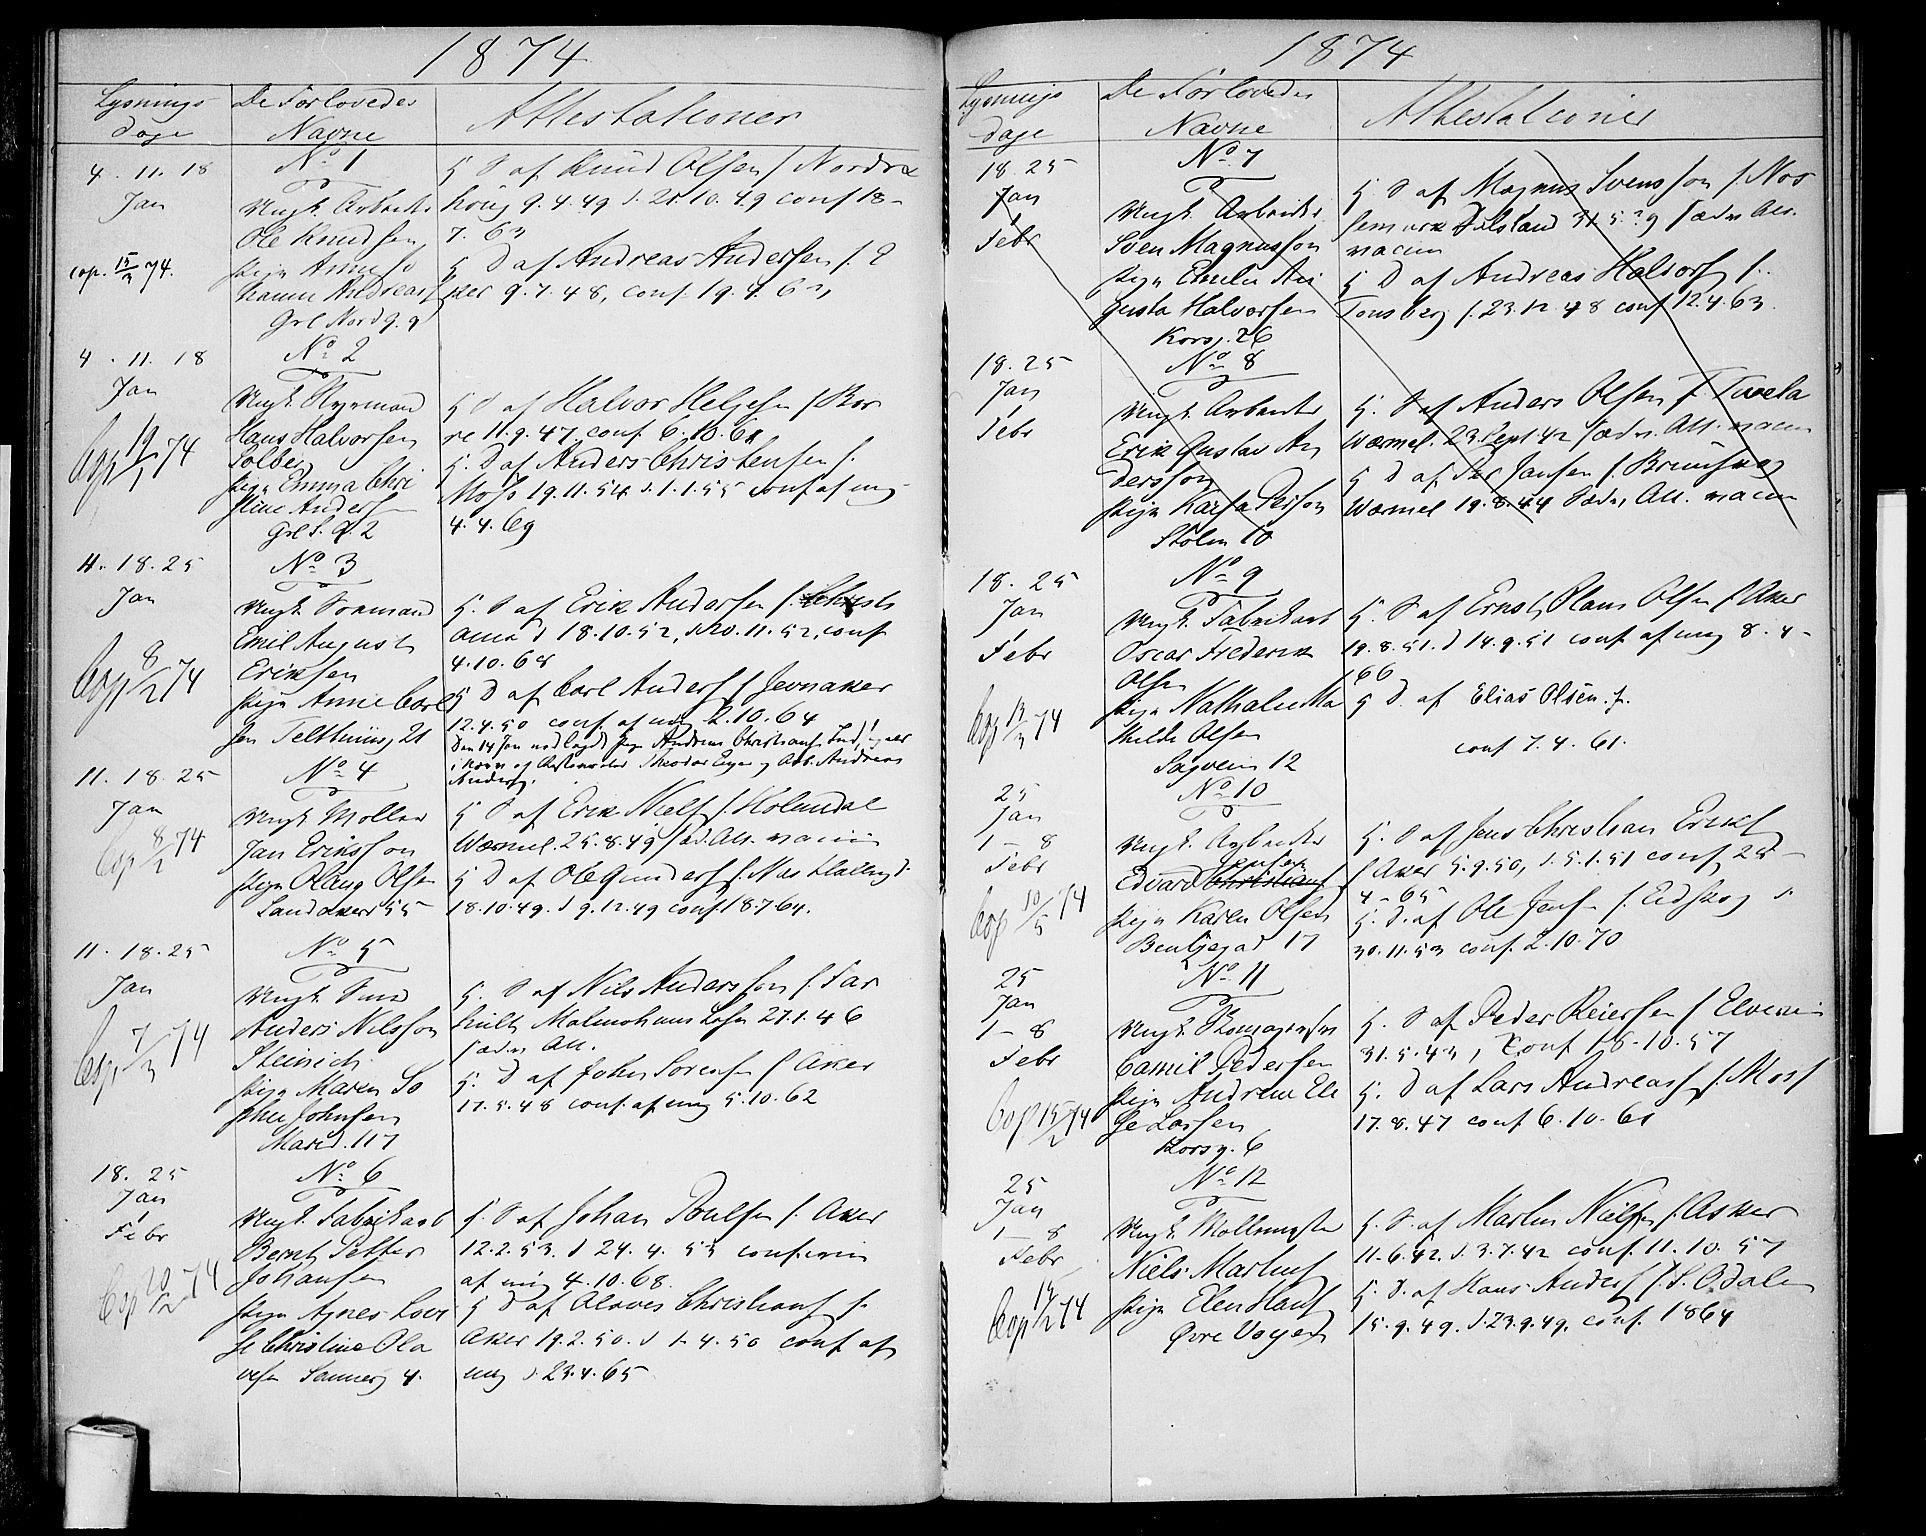 1874
Lysnings
dage
De Forlovedes
Navne
Attestationer
4. 11. 18
Jan
cop. 15/3 74.
No 1
Ungk. Arbeider
Ole Knudsen
Pige Anne Jo
hanne Andreasf
Grl Nordg. 9
S af Knud Olsen f Nordre
9.4.49 d. 21.10.49 conf 18-
7. 63
D af Andreas Andersen f. E
ker 9.7.48, conf. 19.4.63
4. 11. 18
Jan
Cop 19/1 74
No 2
Ungk.
Hans Halvorsen
Solbe
Pige Emma Chri
stine Andersf
Grl. S. g. 2
S af Halvor Helgesen f Bor
re 11.9.47 conf. 6.10.61
D af Anders Christensen f.
Moss 19.11.54 d. 1.1.55 conf af mig
4.4.69
4. 18. 25
Jan
Cop 8/2 74
No 3
Ungk. Sømand
Emil August
Eriksen
Pige Annie Carl
sen Telthusg 21
S af Erik Andersen f. Christi
ania d 18.10.52, d 20.11.52, conf
4.10.68
D af Carl Andersf f Jevnaker
12.4.50 conf. af mig 2.10.64
Den 14 Jan nedlagde Pige Andrine Christians
Theodor Arb. Andreas
Andersf.
11. 18. 25
Jan
Cop 8/2 74
No 4
Ungk Møller
Jan Eriksson
Pige Olaug Olsen
Sandakerv 55
S af Erik Nielsf f. Holmdal
Wærmel. 25.8.49 sæd. Att. vaccin
D af Ole Gundersf f. Næs Halling d.
18.10.49. d 9.12.49 conf 18.7.64.
11. 18. 25
Jan
Cop. 7/3 74
No 5
Ungk. Smed
Anders Nilsson
Steinich
Pige Maren So
phie Johnsen
Marid. 117
S af Nils Andersson f. Far
hult Malmøhuus Lehn 27.1.46
sædv. Att.
D af John Sørensen f Aker
17.5.48 conf. af mig 5.10.62
18. 25
Jan
Febr
Cop 20/2 74
No 6
Ungk. Fabrikarb
Bernt Petter
Johansen
Pige Agnes Lovi
se Christine Ola
vesen Sannerg 4.
S af Johan Poulsen f. Aker
12.2.53. d 24. 4. 53
af mig 4.10.68.
D af Olaves Christiansf f.
Aker 19.2.50. d 1.4.50 conf af
mig d. 23.4.65
1874
Lysnings
dage
De Forlovedes
Navne
Attestationer
18. 25
Jan
Febr
No 7
Ungk. Arbeider
Sven Magnusson
Pige Emelie Au
gusta Halvorsen
Korsg. 26
S af Magnus Svensson f. Nos
semark Dilsland 31.5.?9 sædv Att.
vaccin
D af Andreas Halvorsf f.
Tønsberg f. 23.12.48 conf 12.4.63.
18. 25
Jan
Febr
No 8
Ungk. Arbeider
Erik Gustav An
dersson
Pige Karfa Persson
Stølen 10
S af Anders Olsen f.
Wærmel. 23 Sept 42 sædv. Att. vaccin
D af Per Jansen f. Brunskog
Wærmel 19.8.44 sædv. Att. vaccin
18. 25
Jan
Febr
Cop 13/3 74
No 9
Ungk. Fabrikarb
Oscar Frederik
Olsen
Pige Nathalie Ma
thilde Olsen
Sagveien 12
S af Ernst Olaus Olsen f Aker
19.8.51. d 14.9.51 conf af mig 8.4-
66
D. af Elias Olsen f.
conf 7.4.61.
25
Jan
1 - 8
Febr
Cop 10/5 74
No 10
Ungk. Arbeider
Jensen
Edvard Christians
Pige Karen Olsen
Bentsegad 17
S af Jens Christian Eriksf
f Aker 5.9.50, d. 5.1.51 conf 25-
4-65
D. af Ole Jensen f. Eidskog d
30.11.53 conf. 2.10.70
25
Jan
1 - 8
Febr
Cop 15/2 74
No 11
Ungk.
Camil Pedersen
Pige Andrine Eli
se Larsen
Korsg. 6
S af Peder Reiersen f Elverum
31.5.43, Conf 18.10.57
D af Lars Andreasf f. Moss
17.8.47 conf 6.10.61
25
Jan
1 - 8
Febr
Cop 14/2 74
No 12
Ungk. Møllemester
Niels Martins
Pige Elen Hansf
Øvre Voyen
S. af Martin Nielsen f. Asker
11.6.42. d. 3.7.42 conf. 11.10.57
D. af Hans Andersf f. S. Odalen
15.9.49. d. 23.9.49. conf. 1864